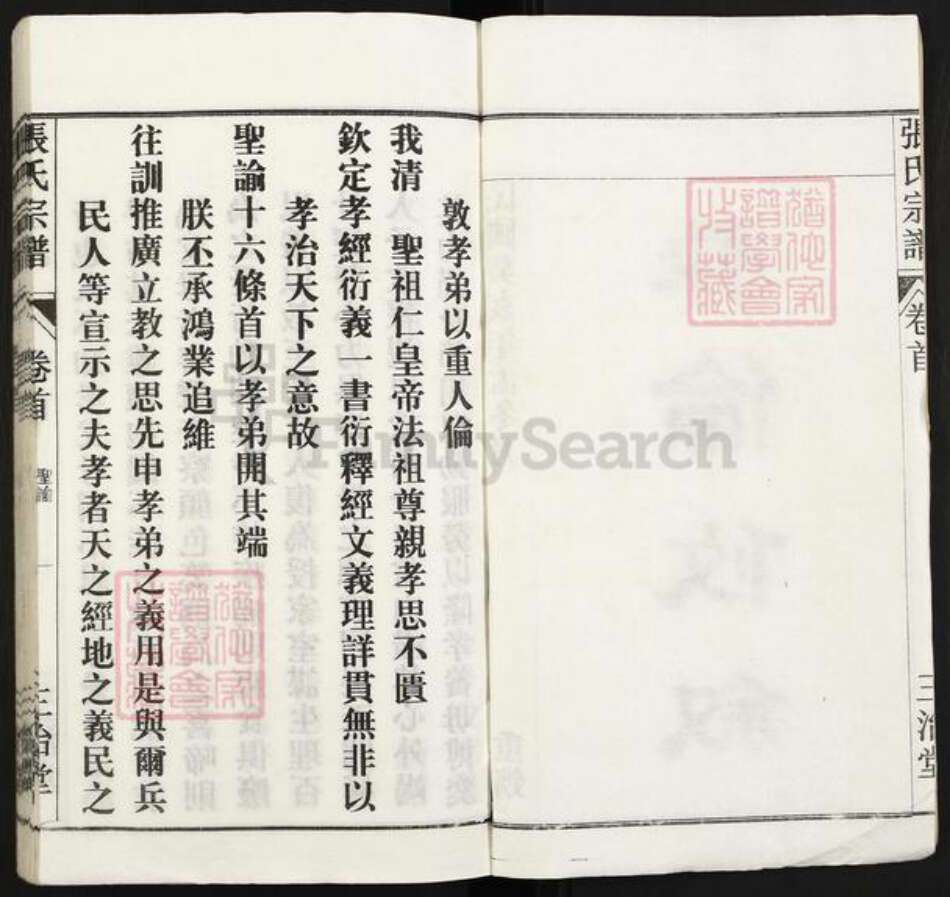 張氏宗譜
卷首
三治堂
敦孝弟以重人倫
我清 聖祖仁皇帝法祖尊親孝思不匱
欽定孝經衍義一書衍釋經文義理詳貫無非以
孝治天下之意故
聖諭十六條首以孝弟開其端
朕丕承鴻業追維
往訓推廣立教之思先申孝弟之義用是與爾兵
民人等宣示之夫孝者天之經地之義民之
張氏宗譜
卷首
聖諭
一
三治堂
FamilySearch